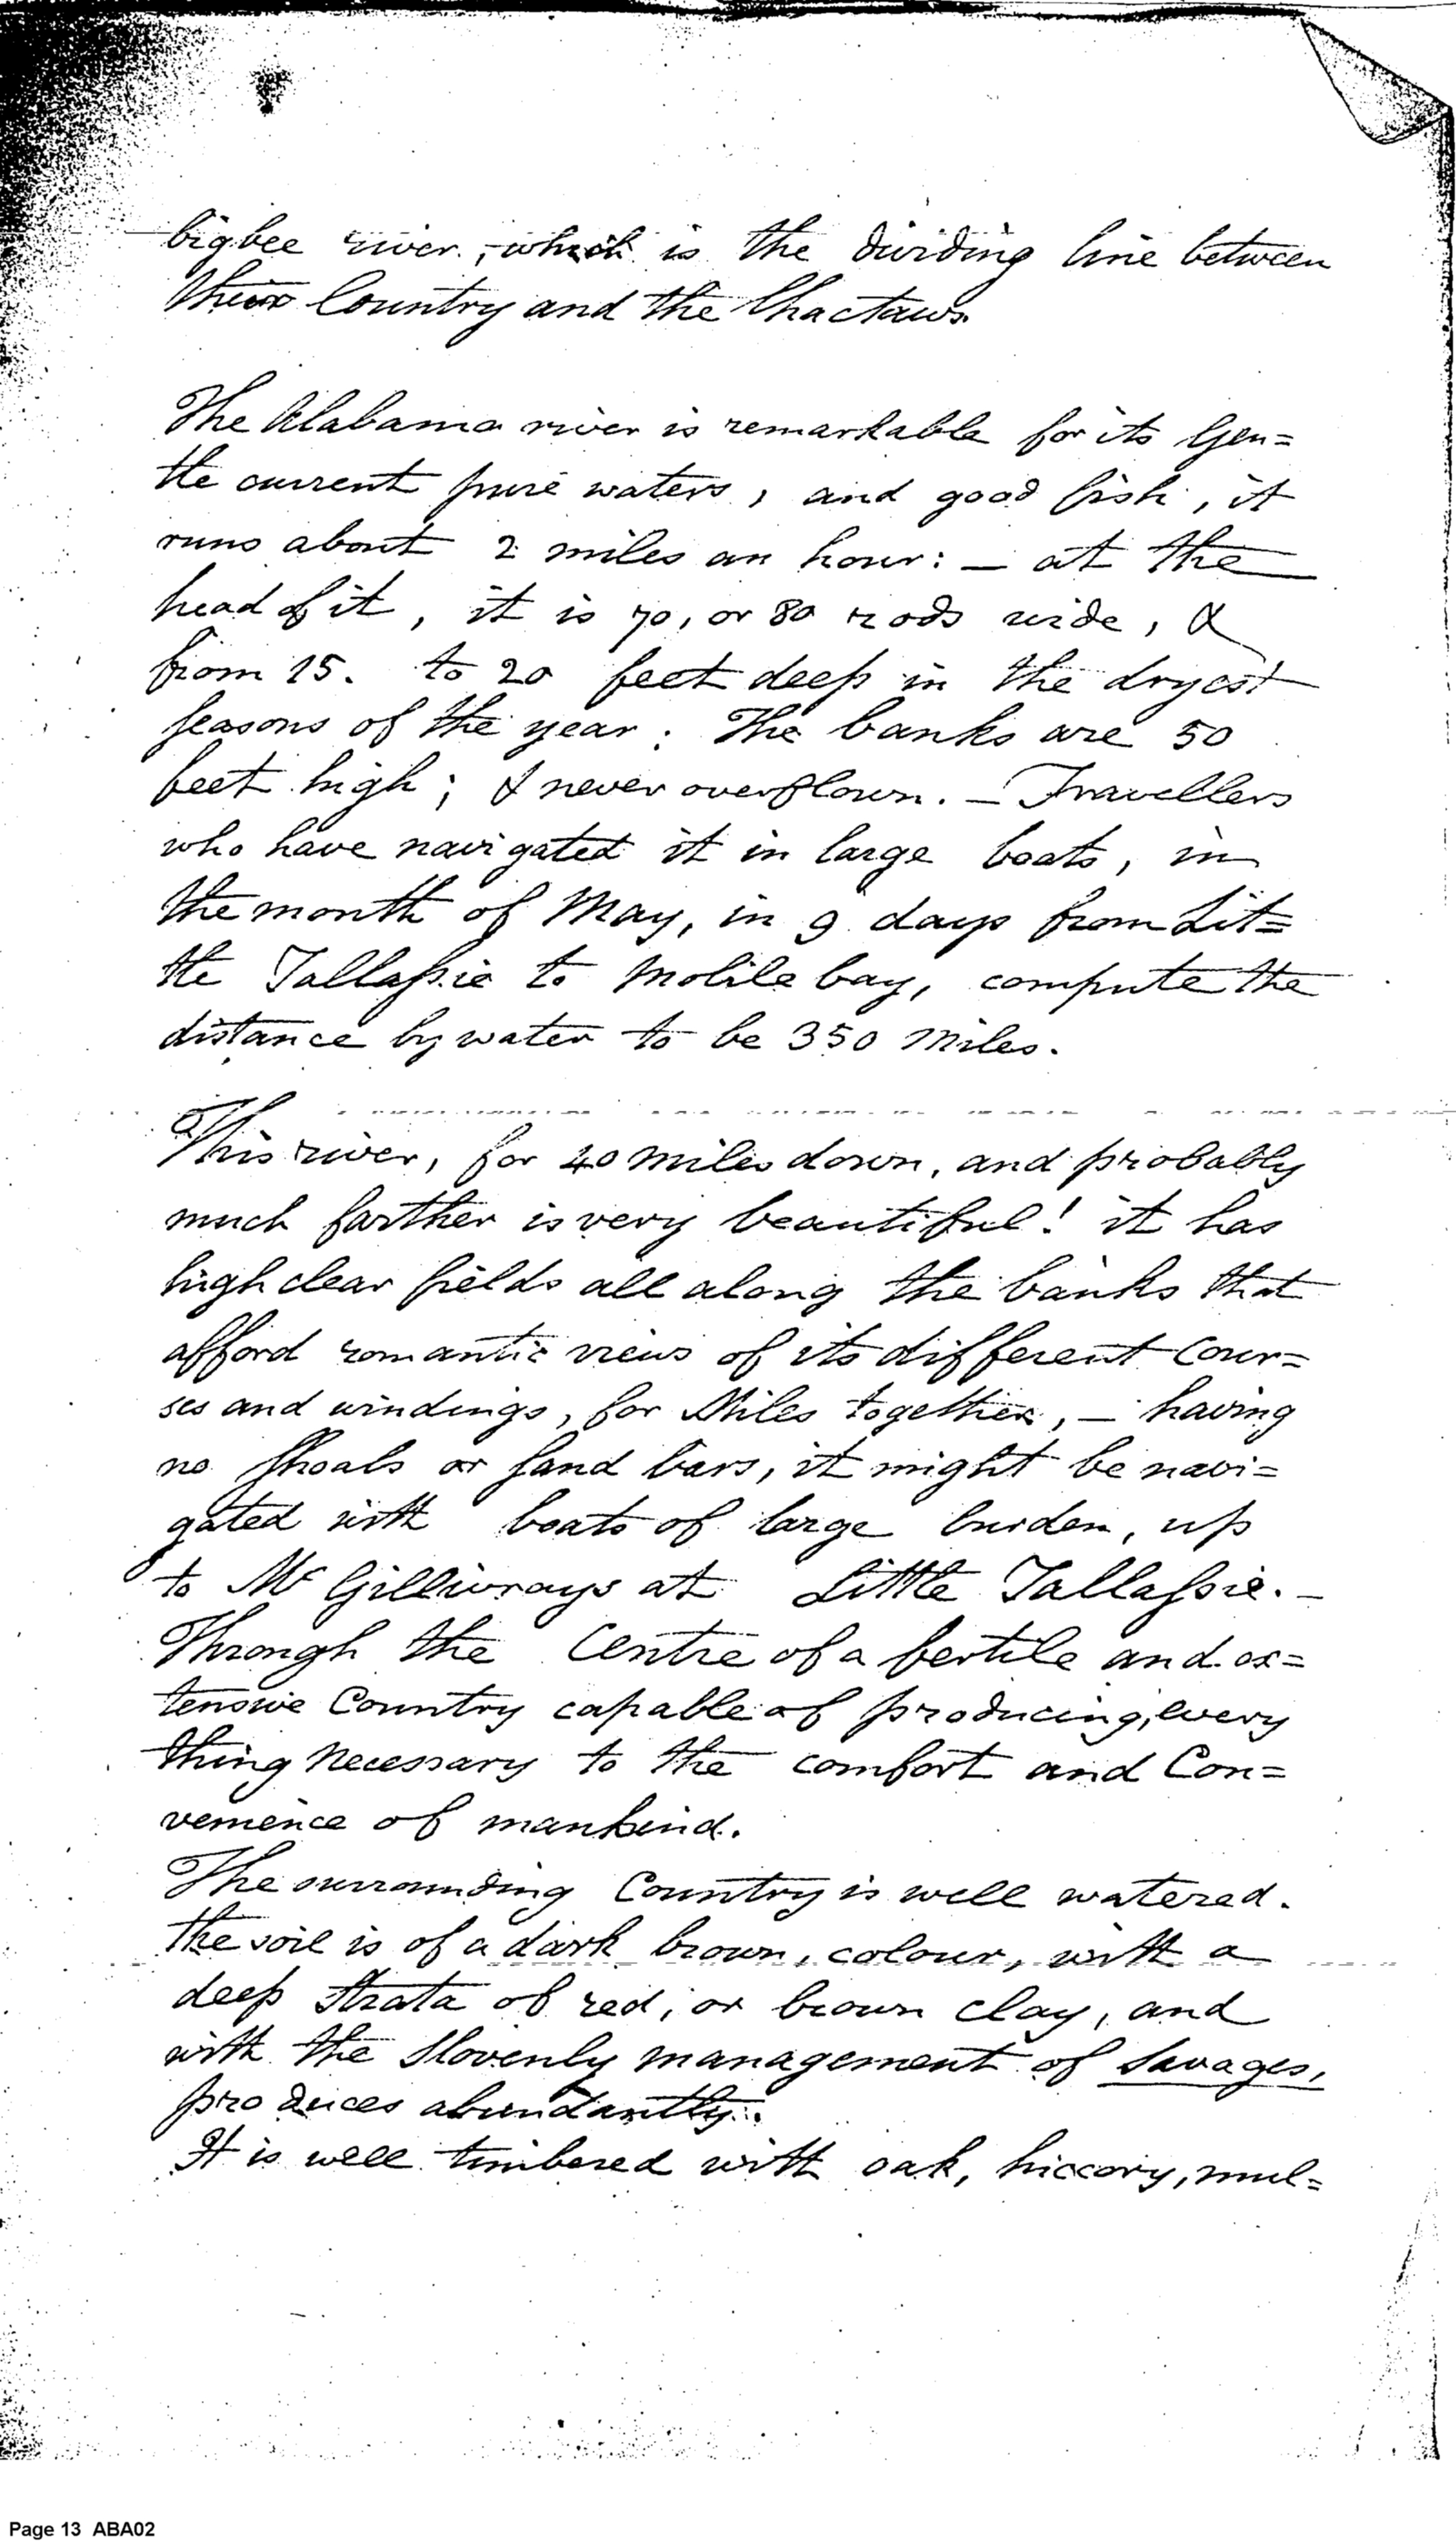 bigbee river, which is the dividing line between
their Country and the Chactaws.
The Alabama river is remarkable for its Gen=
tle current pure waters, and good fish, it
runs about 2 miles an hour: — at the
head of it, it is 70, or 80 rods wide, &
from 15. to 20 feet deep in the dryest
seasons of the year: The banks are 50
feet high; & never overflown. — Travellers
who have navigated it in large boats, in
the month of May, in 9 days from Lit=
tle Tallassie to Mobile bay, compute the
distance by water to be 350 miles.
This river, for 40 miles down, and probably
much farther is very beautiful! it has
high clear fields all along the banks that
afford romantic views of its different Cour=
ses and windings, for Miles together, — having
no shoals or sand bars, it might be navi=
gated with boats of large burden, up
to Mc Gillivrays at Little Tallassie. —
Through the Centre of a fertile and ex=
tensive Country capable of producing, every
thing necessary to the comfort and Con=
venience of mankind.
The surrounding Country is well watered.
the soil is of a dark brown, colour, with a
deep strata of red, or brown clay, and
with the slovenly management of Savages,
produces abundantly.
It is well timbered with oak, hiccory, mul=
Page 13 ABA02